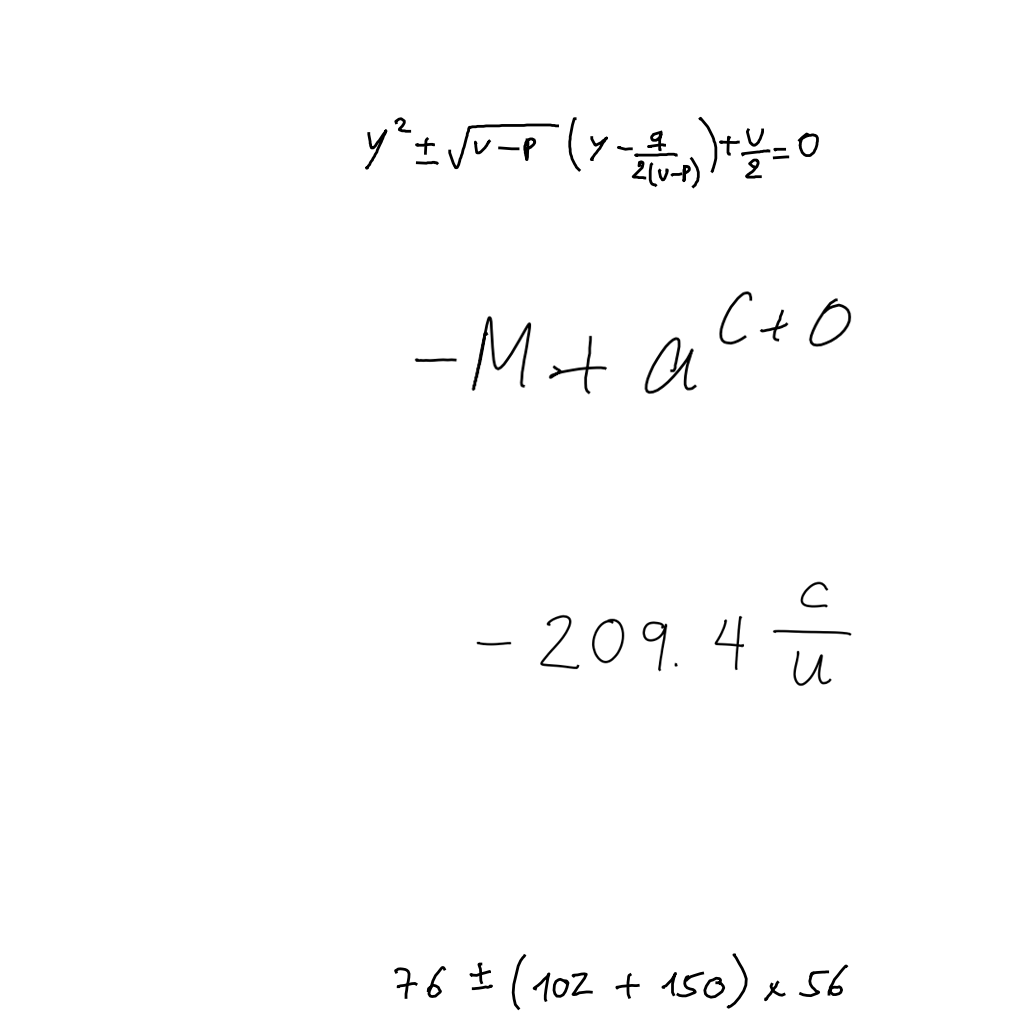 y² ± √(v-p) (y - q/(2(v-p))) + v/2 = 0
-M + a^(C+O)
-209.4 c/u
76 ± (102 + 150) × 56